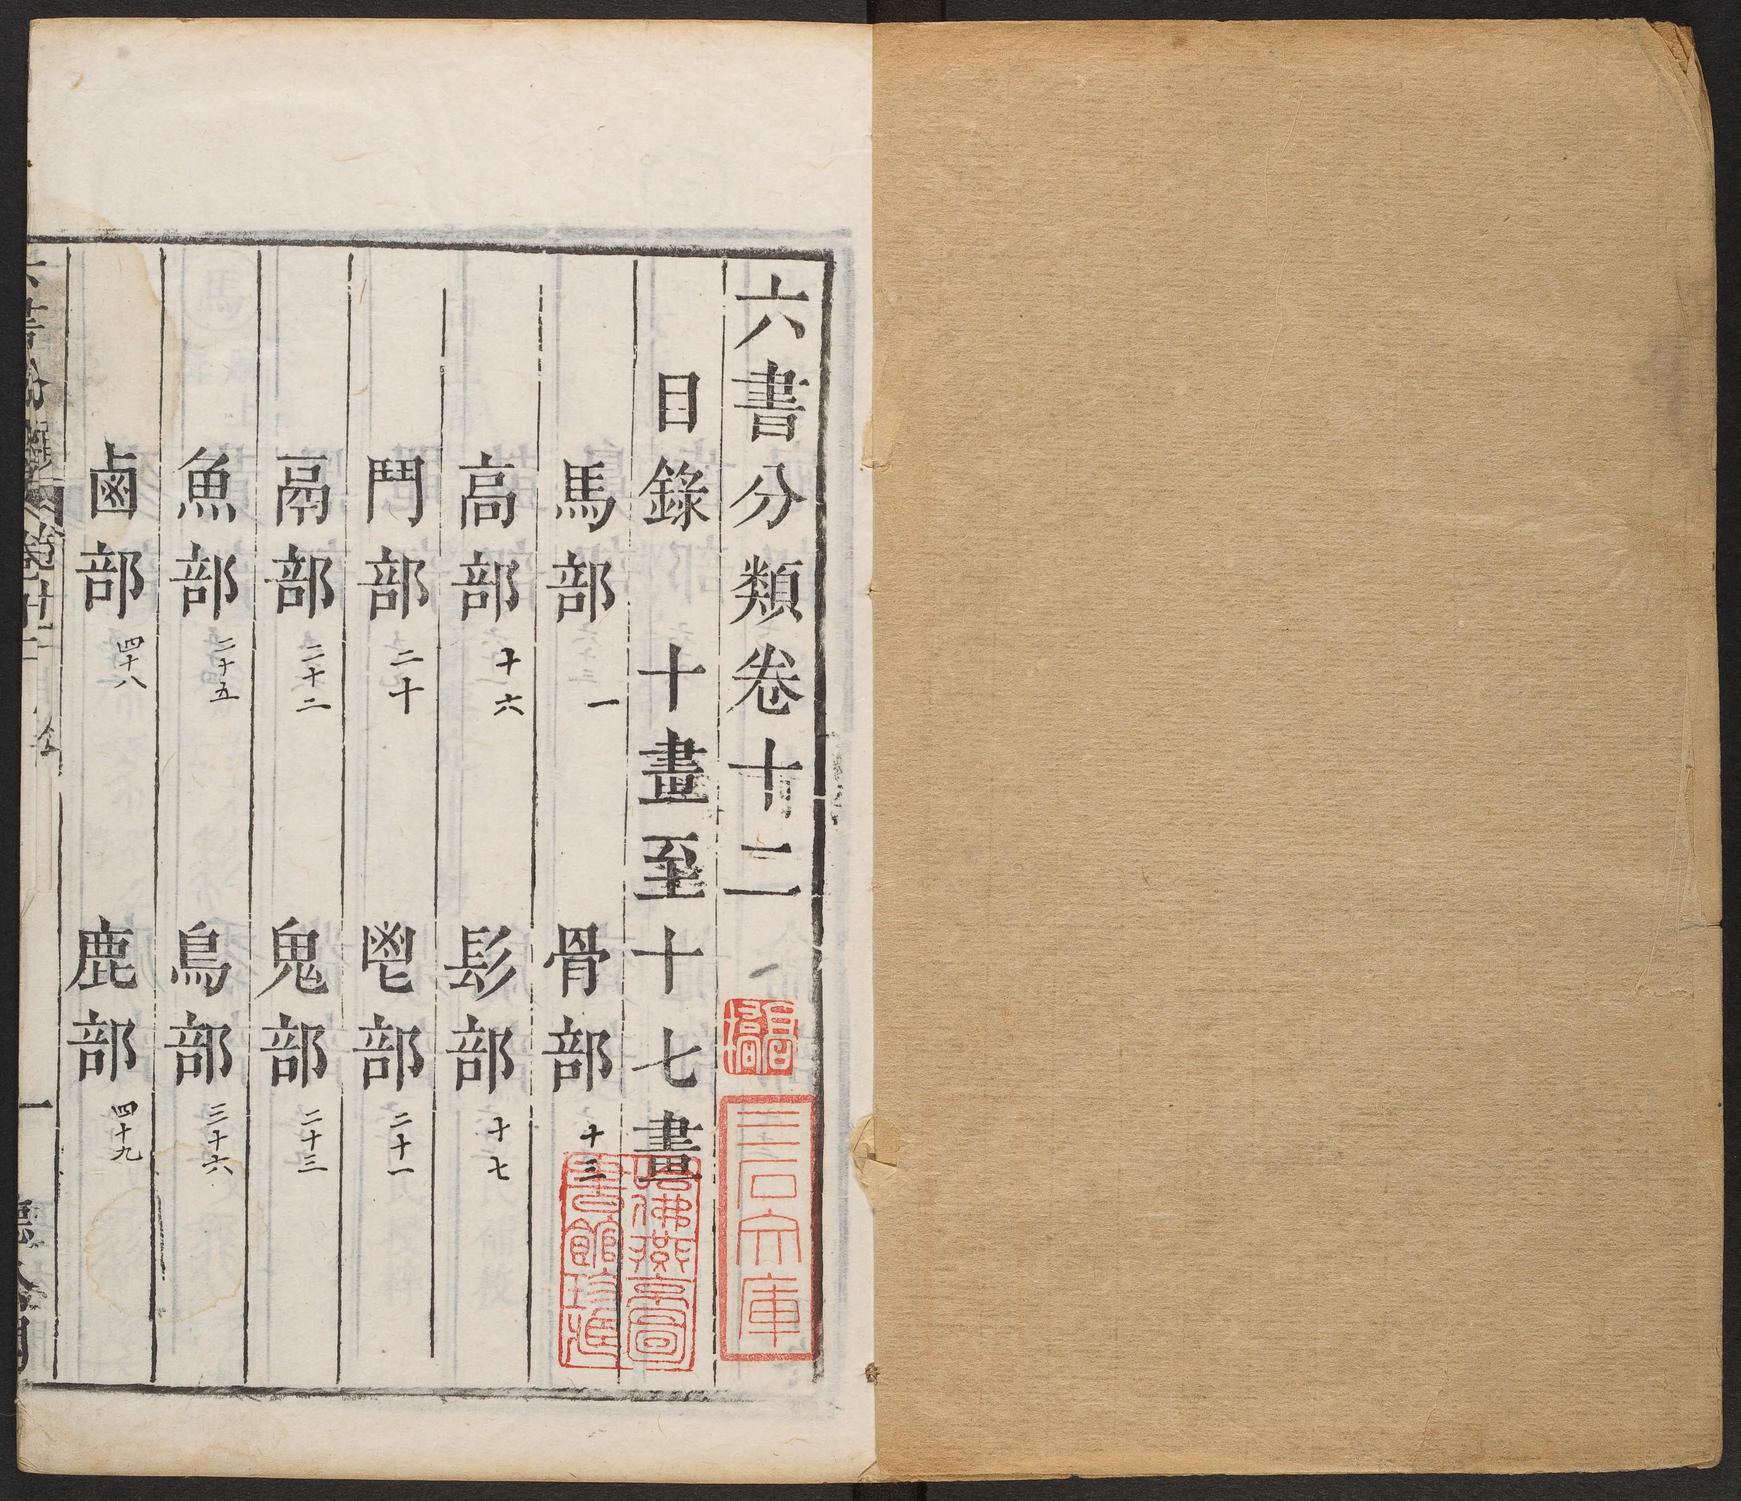 六書分類卷十二
目錄 十畫至十七畫
馬部 一 骨部 十三
高部 十六 髟部 十七
鬥部 二十 鬯部 二十一
鬲部 二十二 鬼部 二十三
魚部 二十五 鳥部 三十六
鹵部 四十八 鹿部 四十九
三石文庫
哈佛燕京圖書館珍藏
一